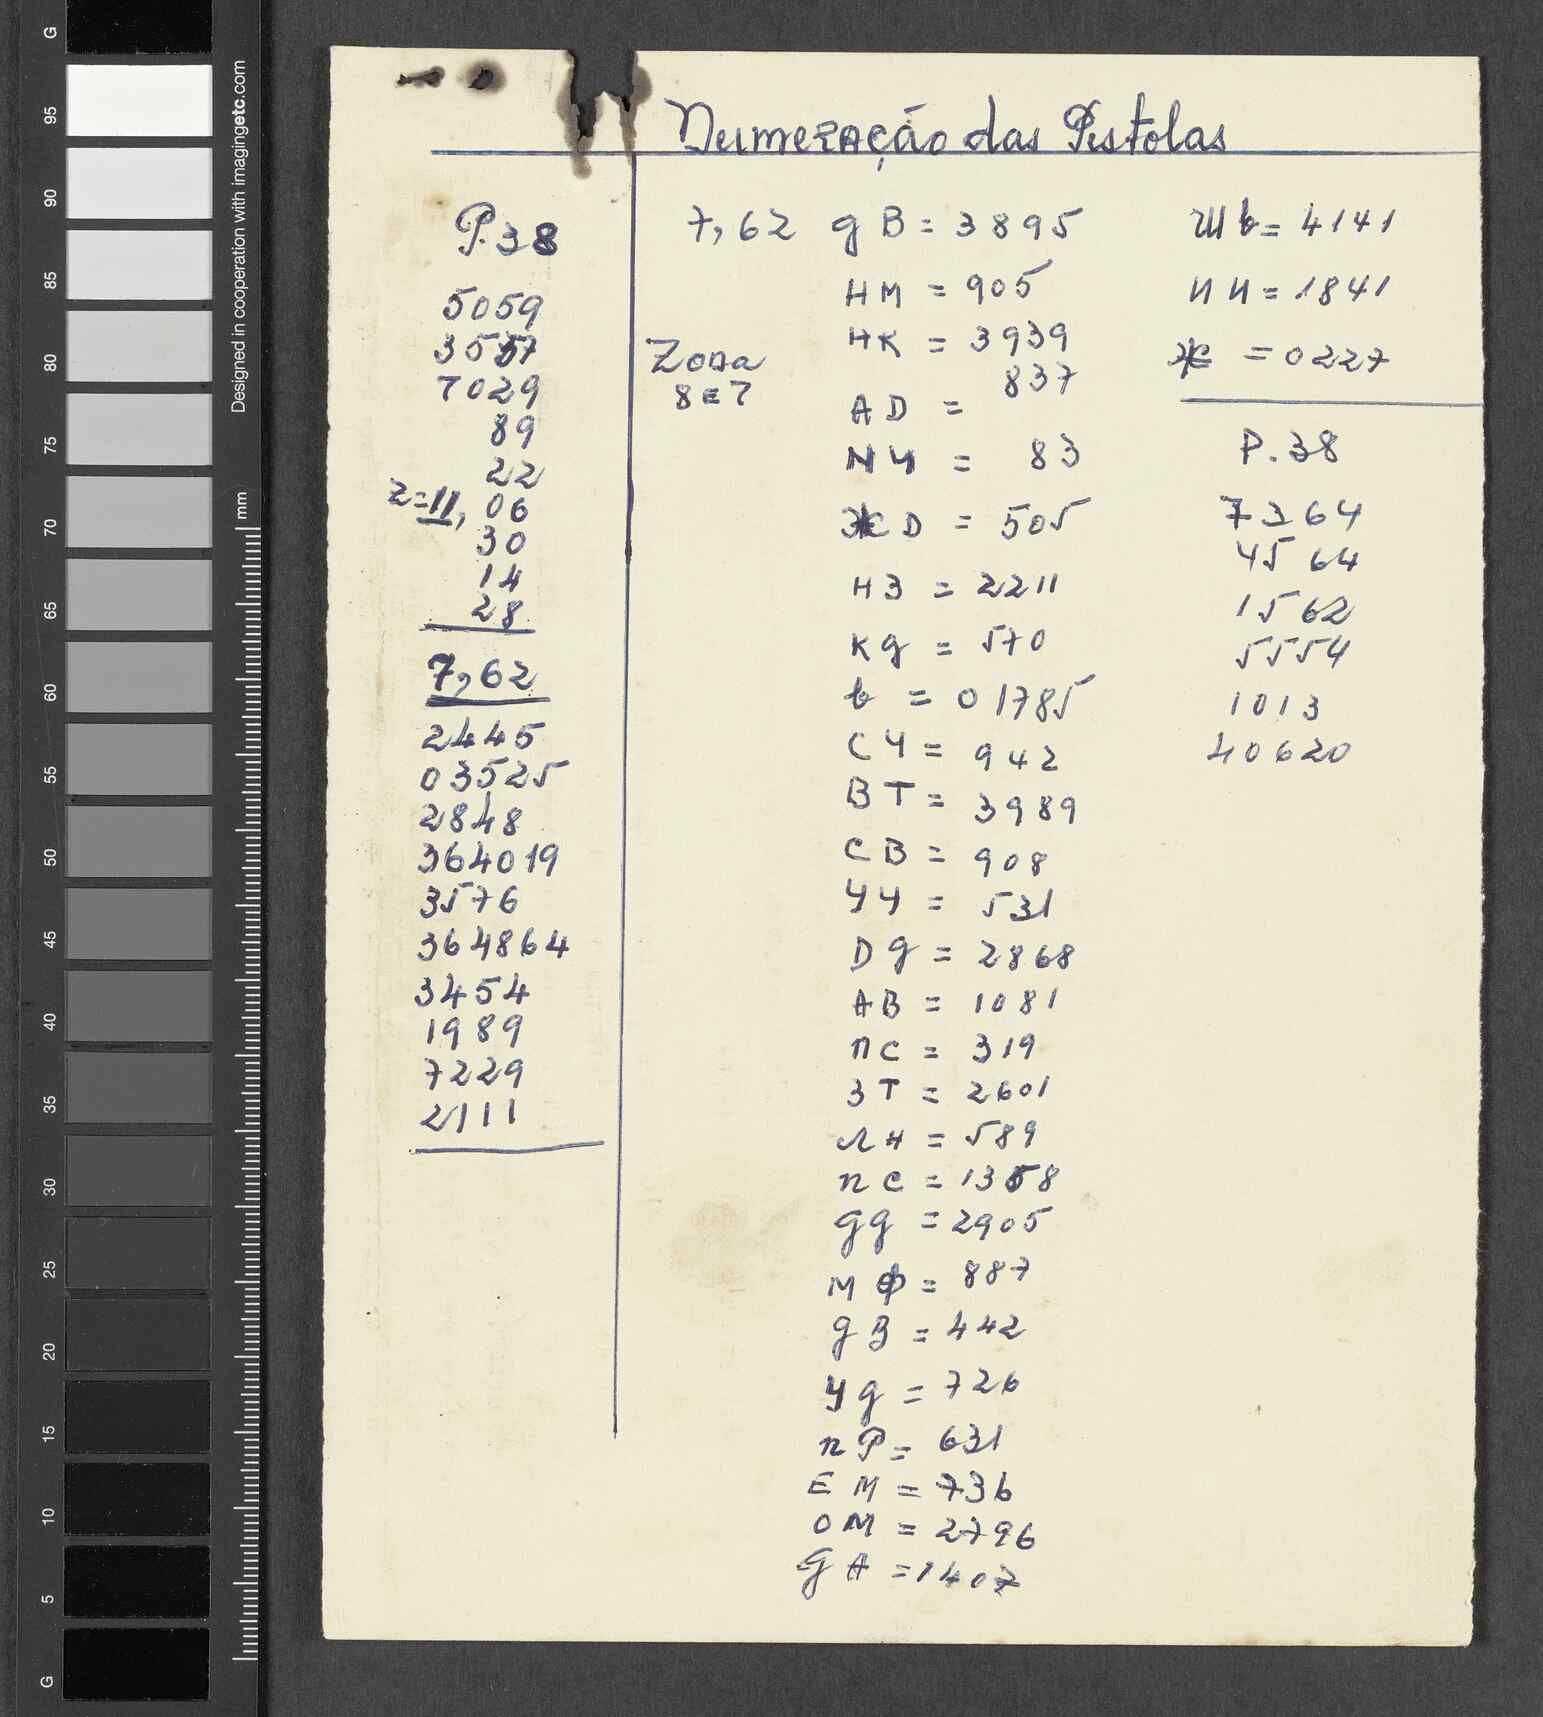 Numeração das Pistolas
P.38
5059
3557
7029
89
22
Z=11, 06
30
14
28
7,62
2445
03525
2848
364019
3576
364864
3454
1989
7229
2111
7,62 gB = 3895
HM = 905
Zona
8 E 7
HK = 3939
837
AD =
NЧ = 83
ЖD = 505
H3 = 2211
Kg = 570
b = 01785
CЧ = 942
BT = 3989
CB = 908
ЧЧ = 531
Dg = 2868
AB = 1081
пC = 319
3T = 2601
ЛH = 589
пC = 1358
gg = 2905
MФ = 887
gB = 442
Чg = 726
пP = 631
EM = 736
OM = 2796
gA = 1407
Шb = 4141
ИИ = 1841
Ж = 0227
P.38
7364
4564
1562
5554
1013
40620
G
95
90
85
80
75
70
65
60
55
50
45
40
35
30
25
20
15
10
5
G
Designed in cooperation with imagingetc.com
mm